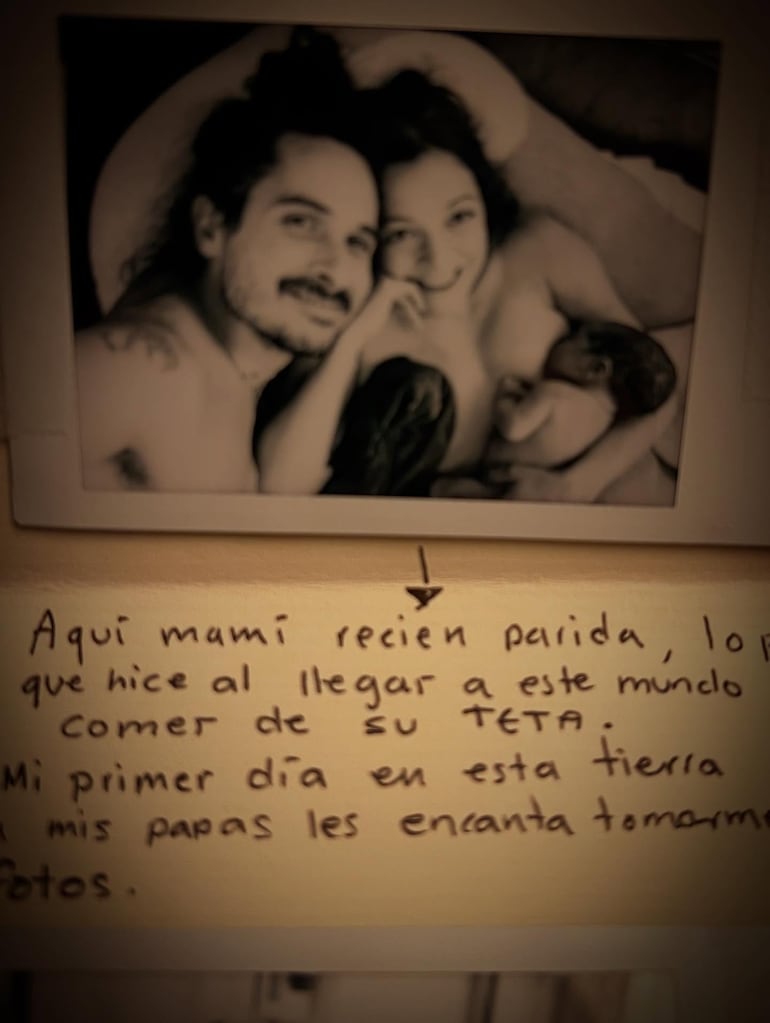 Aquí mamí recien parida, lo
que hice al llegar a este mundo
comer de su TETA.
Mi primer día en esta tierra
mis papas les encanta tomarme
fotos.